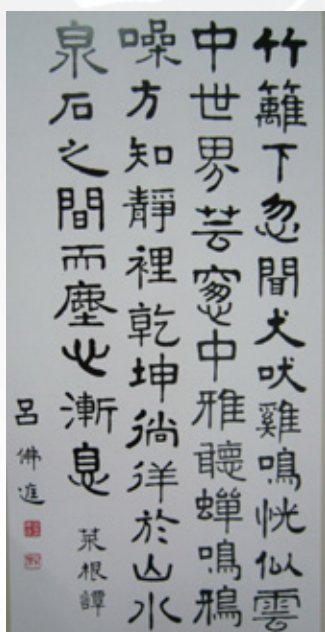 竹籬下忽聞犬吠雞鳴恍似雲
中世界芸窗中雅聽蟬鳴鴉
噪方知靜裡乾坤徜徉於山水
泉石之間而塵心漸息
菜根譚
呂佛進